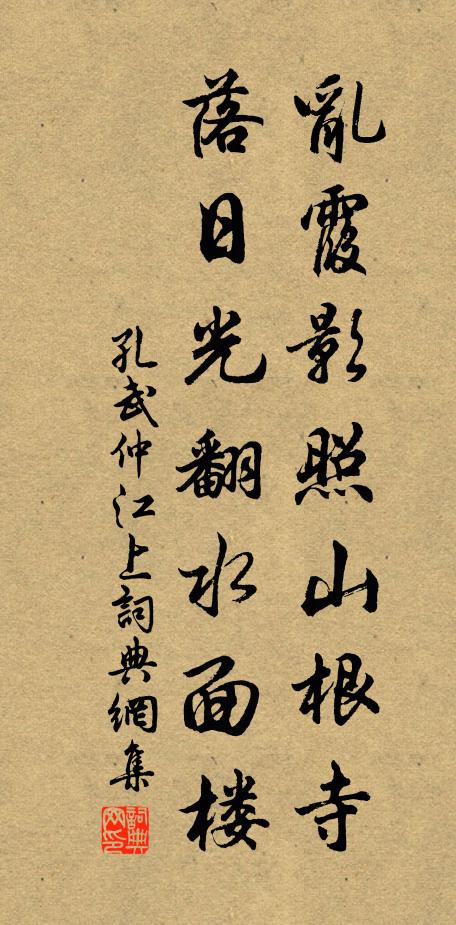 亂霞影照山根寺
落日光翻水面楼
孔武仲江上詞典網集
詞典网印